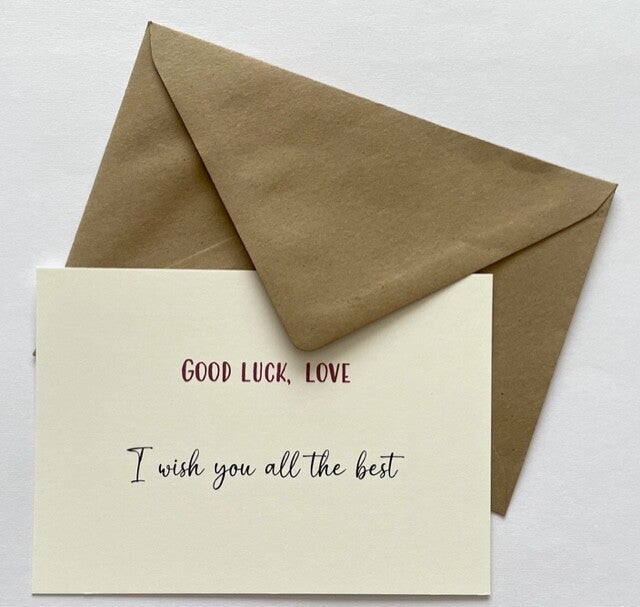 GOOD LUCK, LOVE
I wish you all the best